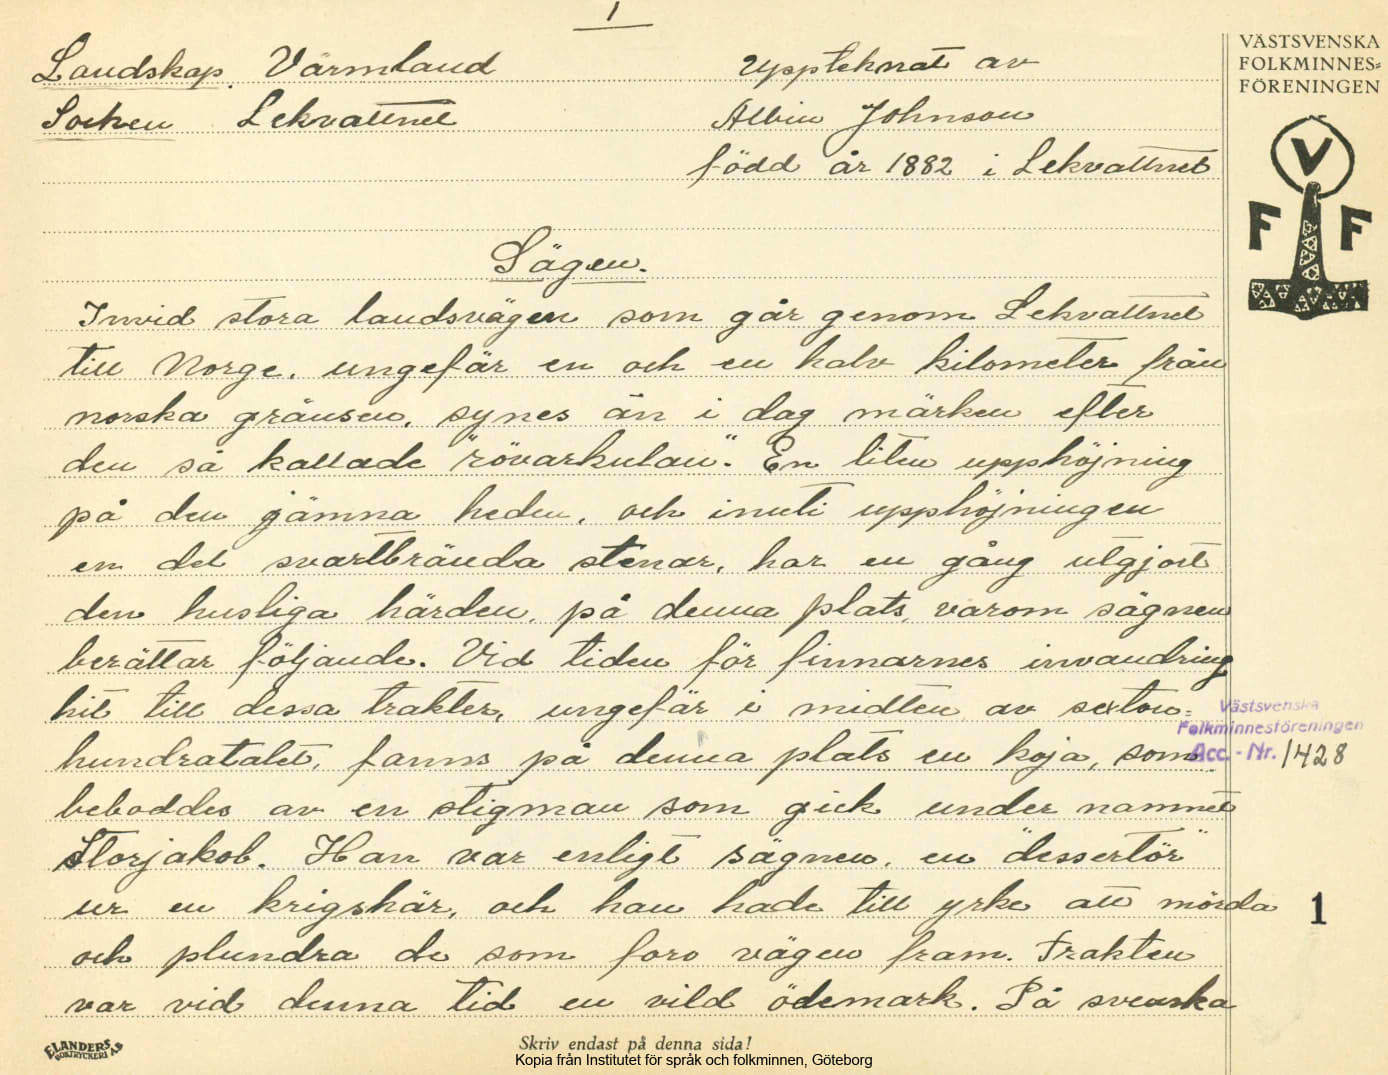 1
Landskap. Värmland
Uppteknat av
Socken Lekvattnet
Albin Johnson
född år 1882 i Lekvattnet
VÄSTSVENSKA
FOLKMINNES=
FÖRENINGEN
V
F F
Sägen.
Invid stora landsvägen som går genom Lekvattnet
till Norge, ungefär en och en halv kilometer från
norska gränsen, synes än i dag märken efter
den så kallade "rövarkulan". En liten upphöjning
på den jämna heden, och inuti upphöjningen
en del svartbrända stenar, har en gång utgjort
den husliga härden, på denna plats, varom sägnen
berättar följande. Vid tiden för finnarnes invandring
hit till dessa trakter, ungefär i midten av sexton=
hundratalet, fanns på denna plats en koja, som
beboddes av en stigman som gick under namnet
Storjakob. Han var enligt sägnen, en "dessertör"
ur en krigshär, och han hade till yrke att mörda
och plundra de som foro vägen fram. Trakten
var vid denna tid en vild ödemark. På svenska
Västsvenska
Folkminnesföreningen
Acc. - Nr. 1428
1
ELANDERS
BOKTRYCKERI A.B
Skriv endast på denna sida!
Kopia från Institutet för språk och folkminnen, Göteborg